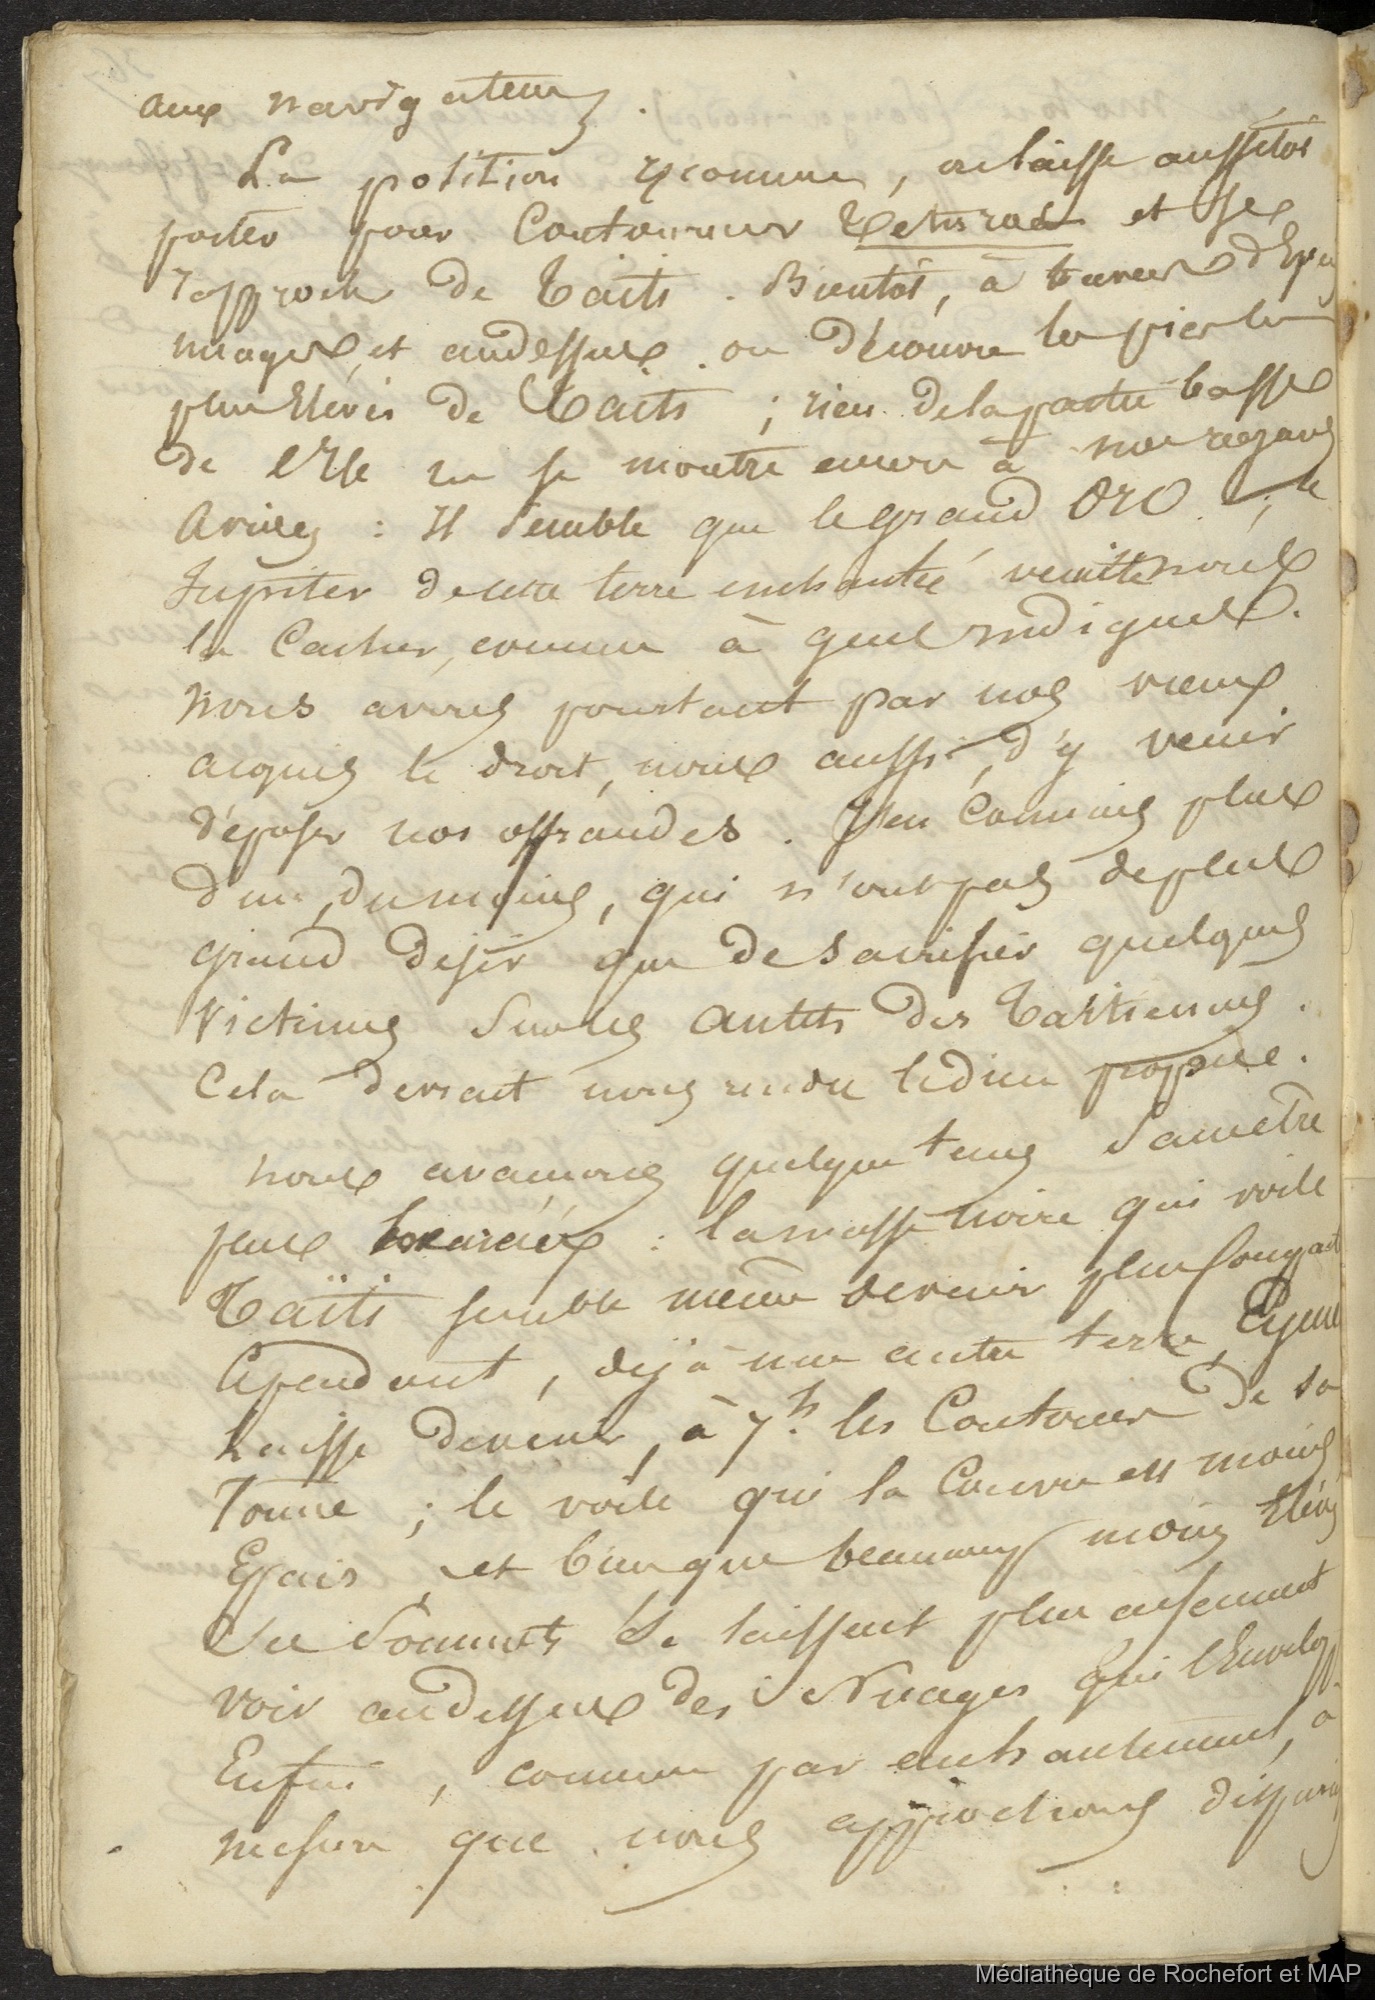 aux navigateurs.
La position reconnue, on laisse aussitôt
porter pour contourner et se
rapprocher de Taïti. Bientôt, à travers d'épais
nuages, et audessus on découvre les pics les
plus élevés de Taïti ; rien de la partie basse
de l'Ile ne se montre encore à nos regards
avides : Il semble que le grand ORO, le
Jupiter de cette terre enchantée veuille nous
la cacher, comme à quels indignes.
nous avons pourtant par nos vœux
acquis le droit, nous aussi, d'y venir
déposer nos offrandes. J'en connais plus
d'un, du moins, qui n'ont pas de plus
grand désir que de sacrifier quelques
victimes sur les autels des Taïtiennes.
Cela devrait nous rendre le dieu propice.
nous avançons quelque tems sans être
plus : la masse noire qui voile
Taïti semble même devenir plus
Cependant, déjà une autre terre, Eymeo
laisse deviner, à 7h. les contours de sa
forme ; le voile qui la couvre est moins
Epais, et bien que beaucoup moins élevés
Ses Sommets se laissent plus aisément
voir audessus des Nuages qui l'envelopp.
Enfin, comme par enchantement, à
mesure que nous approchons